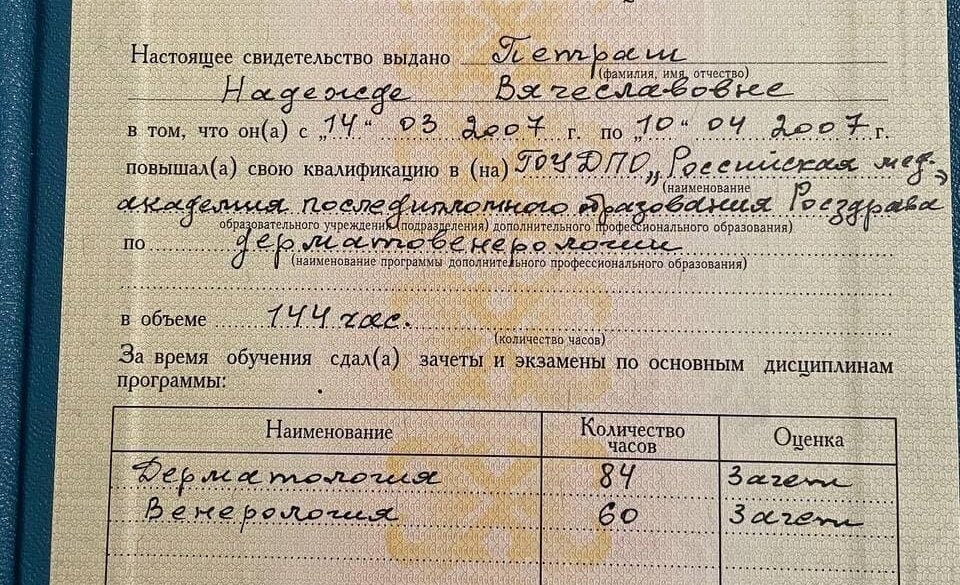 Настоящее свидетельство выдано Петраш
(фамилия, имя, отчество)
Надежде Вячеславовне
в том, что он(а) с „14“ 03 2007 г. по „10“ 04 2007 г.
повышал(а) свою квалификацию в (на) ГОУ ДПО „Российская мед.
(наименование
академия последипломного образования Росздрава”
образовательного учреждения (подразделения) дополнительного профессионального образования)
по дерматовенерологии
(наименование программы дополнительного профессионального образования)
в объеме 144 час.
(количество часов)
За время обучения сдал(а) зачеты и экзамены по основным дисциплинам
программы:
Наименование Количество часов Оценка
Дерматология 84 Зачет
Венерология 60 Зачет